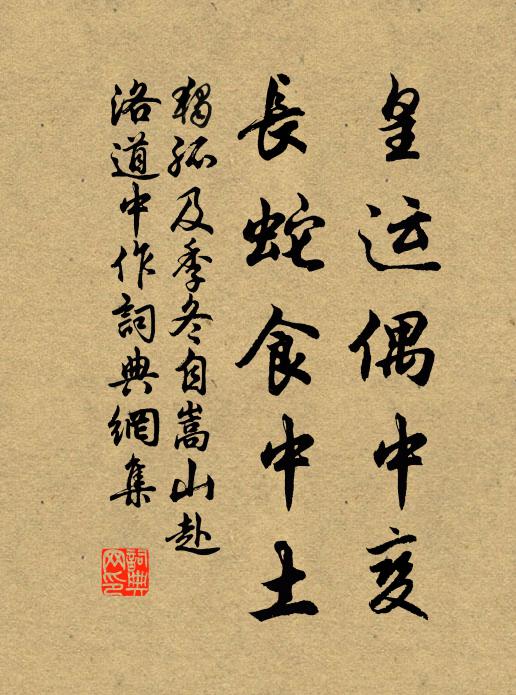 皇运偶中变
長蛇食中土
獨孤及季冬自嵩山赴
洛道中作詞典網集
詞典
网印